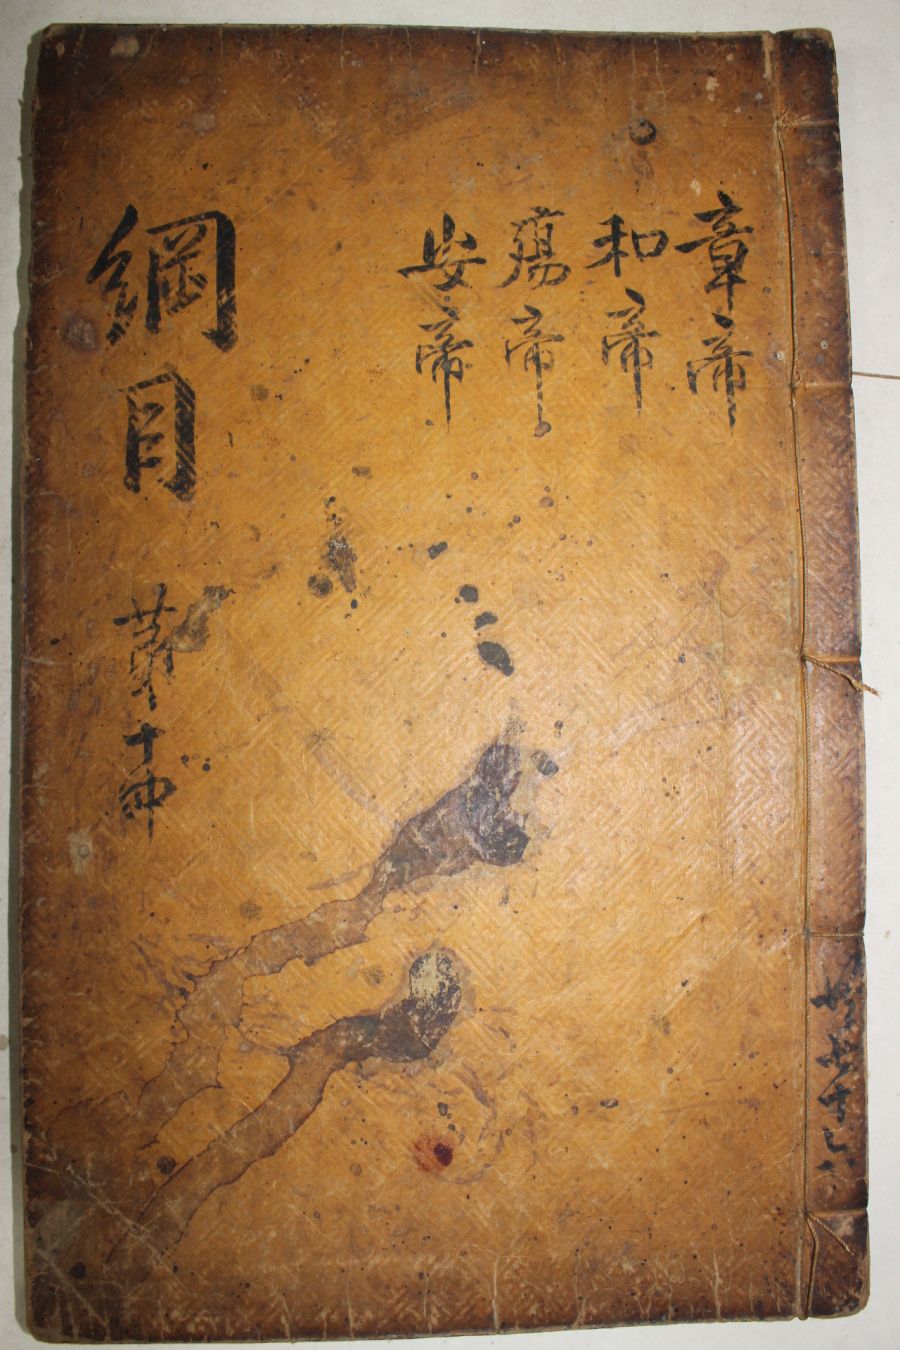 章帝
和帝
殤帝
安帝
綱目 苐十四